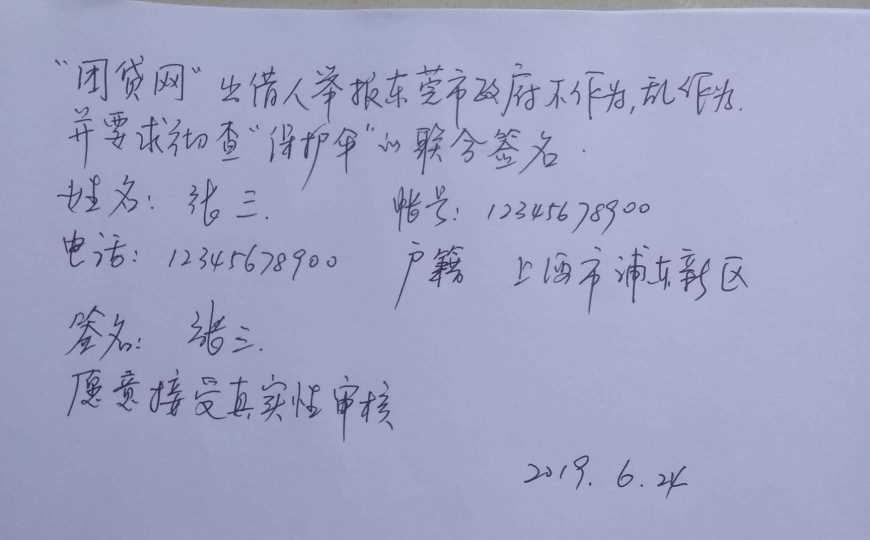 “团贷网”出借人举报东莞市政府不作为,乱作为.
并要求彻查“保护伞”的联合签名.
姓名: 张三. 帐号: 12345678900
电话: 12345678900 户籍 上海市浦东新区
签名: 张三.
愿意接受真实性审核
2019. 6. 24